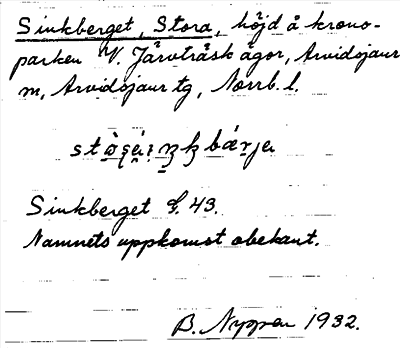 Sinkberget, Stora, höjd å krono-
parken V. Järvträsk ägor, Arvidsjaur
m, Arvidsjaur tg, Norrb. l.
Sinkberget G. 43.
Namnets uppkomst obekant.
B. Nyppen 1932.